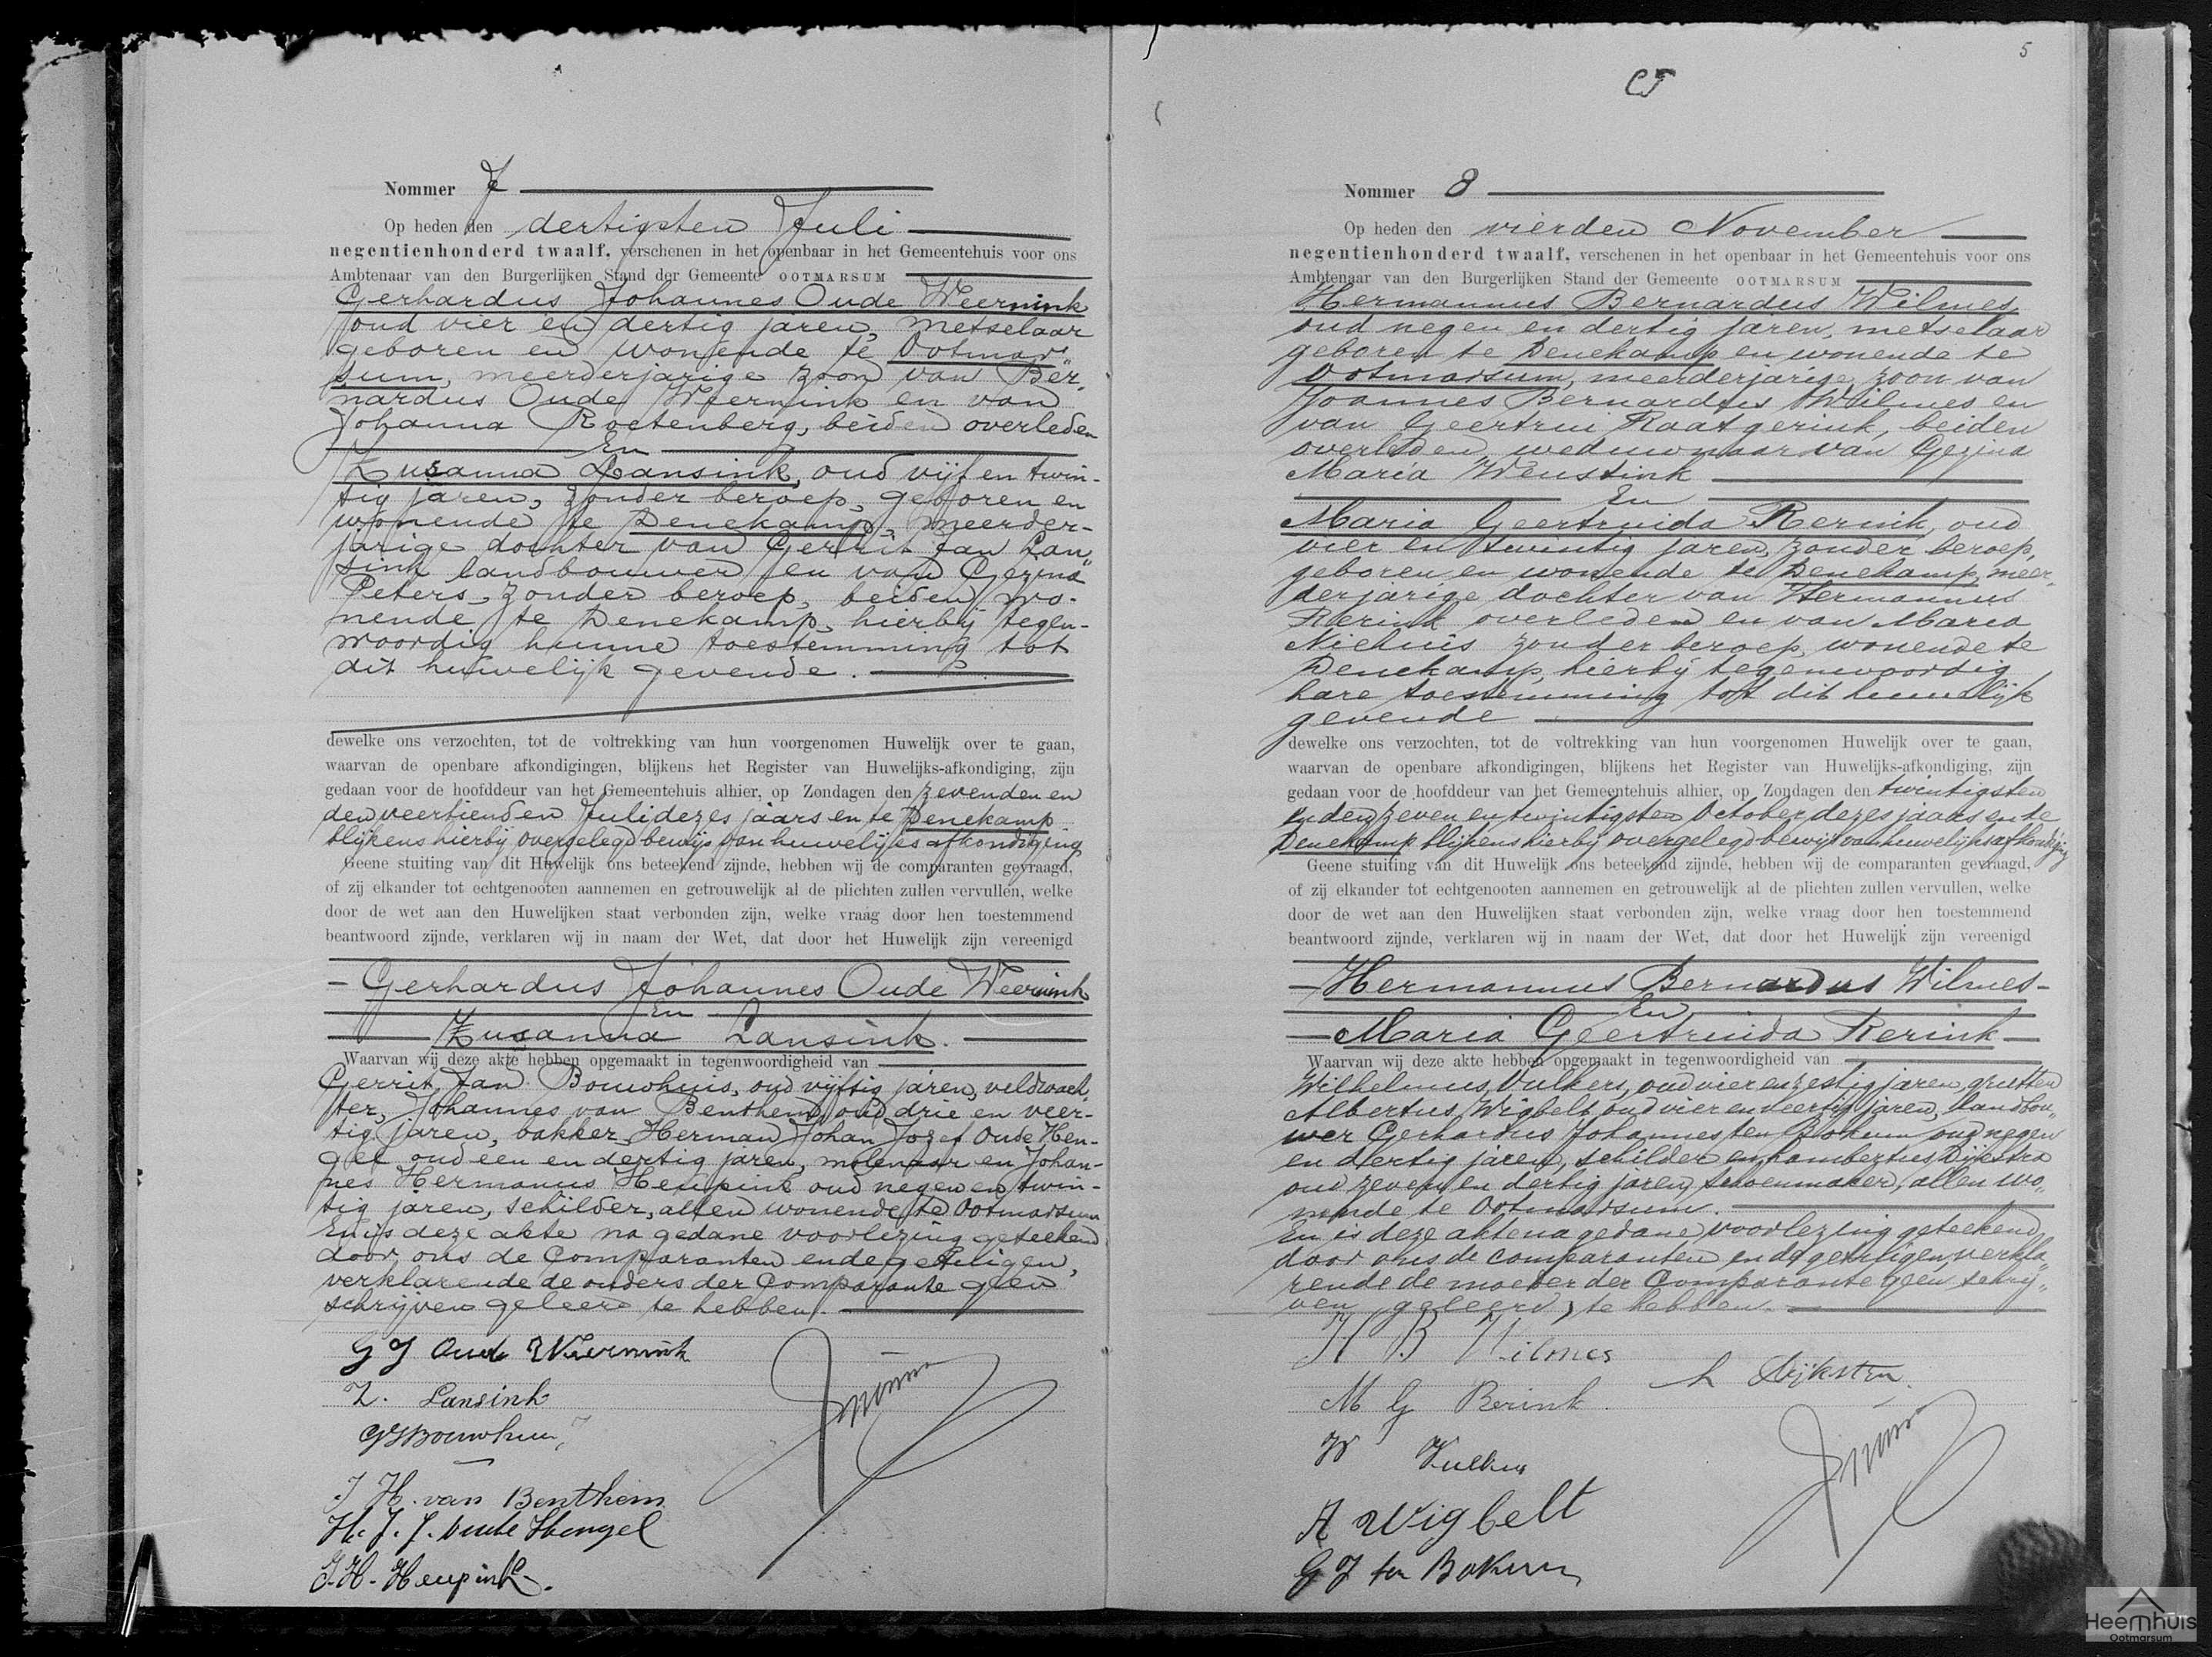 Nommer 7
Op heden den dertigsten Juli
negentienhonderd twaalf, verschenen in het openbaar in het Gemeentehuis voor ons
Ambtenaar van den Burgerlijken Stand der Gemeente OOTMARSUM
Gerhardus Johannes Oude Weernink
oud vier en dertig jaren, metselaar
geboren en wonende te Ootmar„
sum, meerderjarige zoon van Ber„
nardus Oude Weernink en van
Johanna Roetenberg, beiden overleden
En
Zusanna Lansink, oud vijf en twin-
tig jaren, zonder beroep, geboren en
wonende te Denekamp, meerder-
jarige dochter van Gerrit Jan Lan„
sink landbouwer en van Gezina
Peters, zonder beroep, beiden wo-
nende te Denekamp, hierbij tegen-
woordig hunne toestemming tot
dit huwelijk gevende.
dewelke ons verzochten, tot de voltrekking van hun voorgenomen Huwelijk over te gaan,
waarvan de openbare afkondigingen, blijkens het Register van Huwelijks-afkondiging, zijn
gedaan voor de hoofddeur van het Gemeentehuis alhier, op Zondagen den zevenden en
den veertienden Juli dezes jaars en te Denekamp
blijkens hierbij overgelegd bewijs van huwelijksafkondiging
Geene stuiting van dit Huwelijk ons beteekend zijnde, hebben wij de comparanten gevraagd,
of zij elkander tot echtgenooten aannemen en getrouwelijk al de plichten zullen vervullen, welke
door de wet aan den Huwelijken staat verbonden zijn, welke vraag door hen toestemmend
beantwoord zijnde, verklaren wij in naam der Wet, dat door het Huwelijk zijn vereenigd
- Gerhardus Johannes Oude Weernink
En
Zusanna Lansink.
Waarvan wij deze akte hebben opgemaakt in tegenwoordigheid van
Gerrit Jan Bouwhuis, oud vijftig jaren, veldwach„
ter, Johannes van Benthem, oud drie en veer-
tig jaren, bakker, Herman Johan Jozef Oude Hen-
gel oud een en dertig jaren, molenaar en Johan-
nes Hermanus Heupink oud negen en twin-
tig jaren, schilder, allen wonende te Ootmarsum
En is deze akte na gedane voorlezing geteekend
door ons de Comparanten en de getuigen,
verklarende de ouders der Comparante geen
schrijven geleerd te hebben.
G J Oude Weernink
Z. Lansink
GJ Bouwhuis
J H. van Benthem
H. J. J. Oude Hengel
J. H. Heupink.
5
Nommer 8
Op heden den vierden November
negentienhonderd twaalf, verschenen in het openbaar in het Gemeentehuis voor ons
Ambtenaar van den Burgerlijken Stand der Gemeente OOTMARSUM
Hermannus Bernardus Wilmes,
oud negen en dertig jaren, metselaar
geboren te Denekamp en wonende te
Ootmarsum, meerderjarige zoon van
Joannes Bernardus Wilmes en
van Geertrui Raatgerink, beiden
overleden, weduwnaar van Gezina
Maria Weustink
En
Maria Geertruida Rerink, oud
vier en twintig jaren, zonder beroep,
geboren en wonende te Denekamp, meer„
derjarige dochter van Hermannus
Rerink overleden en van Maria
Niehuis zonder beroep, wonende te
Denekamp, hierbij tegenwoordig
hare toestemming tot dit huwelijk
gevende
dewelke ons verzochten, tot de voltrekking van hun voorgenomen Huwelijk over te gaan,
waarvan de openbare afkondigingen, blijkens het Register van Huwelijks-afkondiging, zijn
gedaan voor de hoofddeur van het Gemeentehuis alhier, op Zondagen den twintigsten
en den zeven en twintigsten October dezes jaars en te
Denekamp blijkens hierbij overgelegd bewijs van huwelijksafkondiging
Geene stuiting van dit Huwelijk ons beteekend zijnde, hebben wij de comparanten gevraagd,
of zij elkander tot echtgenooten aannemen en getrouwelijk al de plichten zullen vervullen, welke
door de wet aan den Huwelijken staat verbonden zijn, welke vraag door hen toestemmend
beantwoord zijnde, verklaren wij in naam der Wet, dat door het Huwelijk zijn vereenigd
- Hermannus Bernardus Wilmes -
En
- Maria Geertruida Rerink -
Waarvan wij deze akte hebben opgemaakt in tegenwoordigheid van
Wilhelmus Vulkers, oud vier en zestig jaren, grutter
Albertus Wigbelt oud vier en veertig jaren, landbou„
wer Gerhardus Johannes ten Bokum oud negen
en dertig jaren, schilder en Lambertus Dijkstra
oud zeven en dertig jaren, schoenmaker, allen wo„
nende te Ootmarsum.
En is deze akte na gedane voorlezing geteekend
door ons de comparanten en de getuigen, verkla„
rende de moeder der Comparante geen schrij„
ven geleerd te hebben.
H B Wilmes
L Dijkstra
M G Rerink.
W Vulkers
A Wigbelt
G J ten Bokum
Heemhuis
Ootmarsum